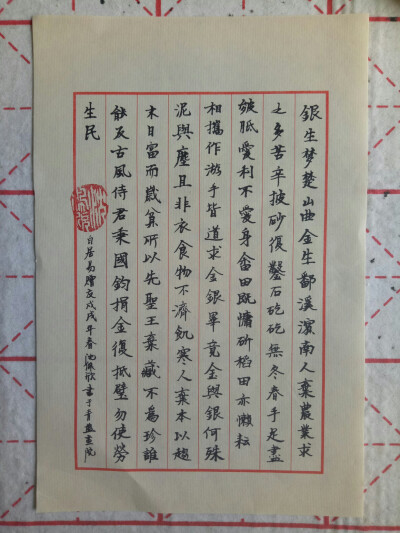 銀生梦楚山曲金生鄱溪濵南人棄農業求
之多苦辛披砂復鑿石矻矻無冬春手足盡
皴胝愛利不愛身畬田既慵斫稻田亦懶耘
相攜作游手皆道求金銀畢竟金與銀何殊
泥與塵且非衣食物不濟飢寒人棄本以趨
末日富而歲貧所以先聖王棄藏不爲珍誰
能反古風待君秉國鈞捐金復抵璧勿使勞
生民
白居易贈友戊戌年春佩欣書于畫院